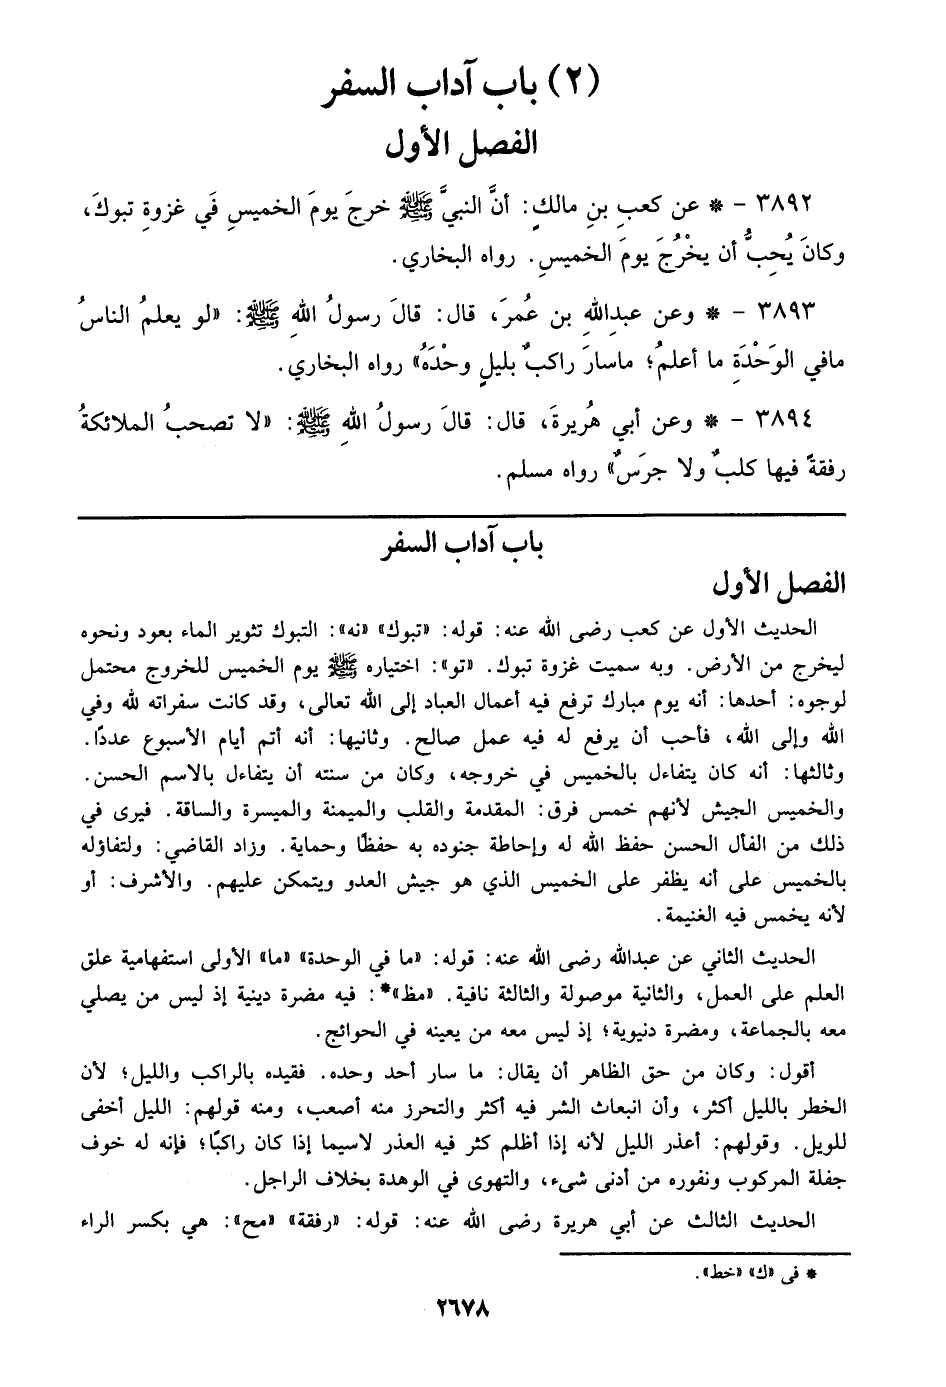 (٢) باب آداب السفر
الفصل الأول
٣٨٩٢ – * عن كعبِ بنِ مالكٍ: أنَّ النبيَّ ﷺ خرجَ يومَ الخميسِ فَي غزوةِ تبوكَ،
وكانَ يُحِبُّ أن يخْرُجَ يومَ الخميسِ. رواه البخاري.
٣٨٩٣ – * وعن عبدِاللهِ بن عُمرَ، قال: قالَ رسولُ اللهِ ﷺ: «لو يعلمُ الناسُ
مافي الوَحْدَةِ ما أعلمُ؛ ماسارَ راكبٌ بليلٍ وحْدَهُ» رواه البخاري.
٣٨٩٤ – * وعن أبي هُريرةَ، قال: قالَ رسولُ اللهِ ﷺ: «لا تصحبُ الملائكةُ
رفقةً فيها كلبٌ ولا جرَسٌ» رواه مسلم.
باب آداب السفر
الفصل الأول
الحديث الأول عن كعب رضى الله عنه: قوله: «تبوك» «نه»: التبوك تثوير الماء بعود ونحوه
ليخرج من الأرض. وبه سميت غزوة تبوك. «تو»: اختياره ﷺ يوم الخميس للخروج محتمل
لوجوه: أحدها: أنه يوم مبارك ترفع فيه أعمال العباد إلى الله تعالى، وقد كانت سفراته لله وفي
الله وإلى الله، فأحب أن يرفع له فيه عمل صالح. وثانيها: أنه أتم أيام الأسبوع عددًا.
وثالثها: أنه كان يتفاءل بالخميس في خروجه، وكان من سنته أن يتفاءل بالاسم الحسن.
والخميس الجيش لأنهم خمس فرق: المقدمة والقلب والميمنة والميسرة والساقة. فيرى في
ذلك من الفأل الحسن حفظ الله له وإحاطة جنوده به حفظًا وحماية. وزاد القاضي: ولتفاؤله
بالخميس على أنه يظفر على الخميس الذي هو جيش العدو ويتمكن عليهم. والأشرف: أو
لأنه يخمس فيه الغنيمة.
الحديث الثاني عن عبدالله رضى الله عنه: قوله: «ما في الوحدة» «ما» الأولى استفهامية علق
العلم على العمل، والثانية موصولة والثالثة نافية. «مظ»*: فيه مضرة دينية إذ ليس من يصلي
معه بالجماعة، ومضرة دنيوية؛ إذ ليس معه من يعينه في الحوائج.
أقول: وكان من حق الظاهر أن يقال: ما سار أحد وحده. فقيده بالراكب والليل؛ لأن
الخطر بالليل أكثر، وأن انبعاث الشر فيه أكثر والتحرز منه أصعب، ومنه قولهم: الليل أخفى
للويل. وقولهم: أعذر الليل لأنه إذا أظلم كثر فيه العذر لاسيما إذا كان راكبًا؛ فإنه له خوف
جفلة المركوب ونفوره من أدنى شىء، والتهوى في الوهدة بخلاف الراجل.
الحديث الثالث عن أبي هريرة رضى الله عنه: قوله: «رفقة» «مح»: هي بكسر الراء
* فى «ك» «خط».
٢٦٧٨